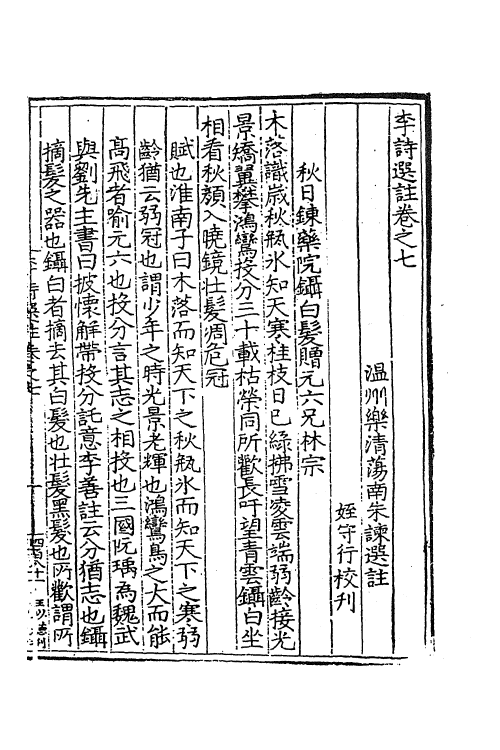 李詩選註卷之七
温州樂清蕩南朱諫選註
姪守行校刊
秋日鍊藥院鑷白髮贈元六兄林宗
木落識歲秋瓶氷知天寒桂枝日已綠拂雪凌雲端弱齡接光
景矯翼攀鴻鸞投分三十載枯榮同所歡長吁望青雲鑷白坐
相看秋顏入曉鏡壯髮凋危冠
賦也淮南子曰木落而知天下之秋瓶氷而知天下之寒弱
齡猶云弱冠也謂少年之時光景老輝也鴻鸞鳥之大而能
髙飛者喻元六也投分言其志之相投也三國阮瑀為魏武
與劉先主書曰披懷解帶投分託意李善註云分猶志也鑷
摘髮之器也鑷白者摘去其白髮也壯髮黑髮也所歡謂所